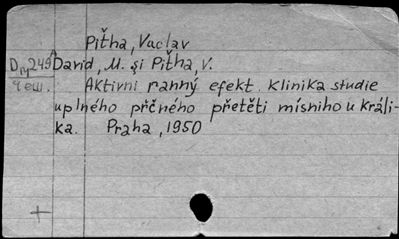 Piťha, Vaclav
David, M. și Piťha, V.
Aktivni ranný efekt. Klinika studie
uplného přčného přetěti mísniho u králi-
ka. Praha, 1950